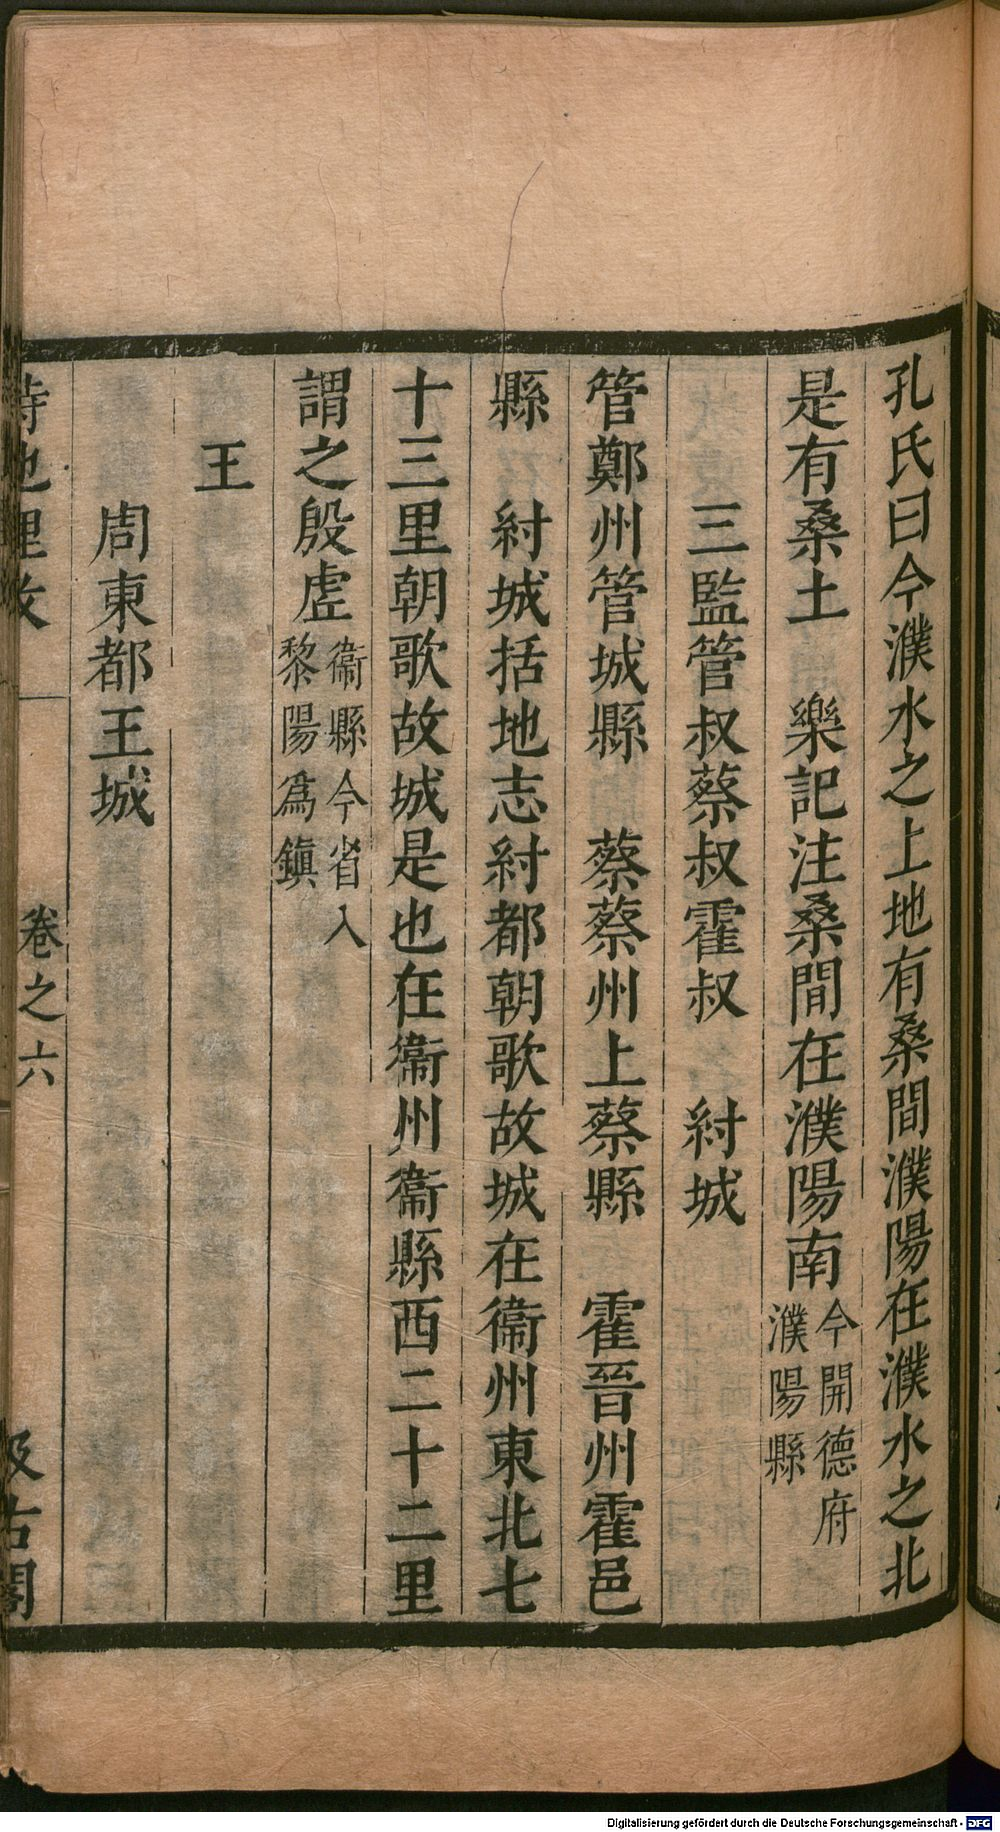 孔氏曰今濮水之上地有桑間濮陽在濮水之北
是有桑土　樂記注桑間在濮陽南今開德府濮陽縣
三監管叔蔡叔霍叔　紂城
管鄭州管城縣　蔡蔡州上蔡縣　霍晉州霍邑
縣　紂城括地志紂都朝歌故城在衞州東北七
十三里朝歌故城是也在衞州衞縣西二十二里
謂之殷虗衞縣今省入黎陽爲鎮
王
周東都王城
詩地理攷　卷之六　汲古閣
Digitalisierung gefördert durch die Deutsche Forschungsgemeinschaft - DFG